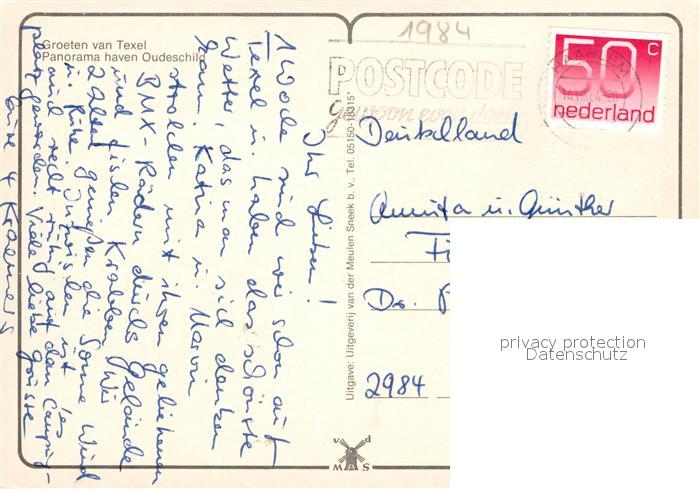 Groeten van Texel
Panorama haven Oudeschild
1984
POSTCODE
gewoon
50 c
nederland
Ihr Lieben!
1 Woche sind wir schon auf
Texel u. haben das schönste
Wetter, das man sich denken
kann. Katrin u. Marvin
strolchen mit ihren geliehenen
BMX-Rädern durchs Gelände
und fischen Krabben. Wir
2 Alten genießen die Sonne
u. Ruhe. Inzwischen ist es
auch recht ruhig auf dem Camping-
platz geworden. Viele liebe Grüsse
Eure 4
Uitgave: Uitgeverij van der Meulen Sneek b.v., Tel. 05150-18315*
Deutschland
Annita u. Günther
Fi
Dr.
2984
privacy protection
Datenschutz
v d
MAS